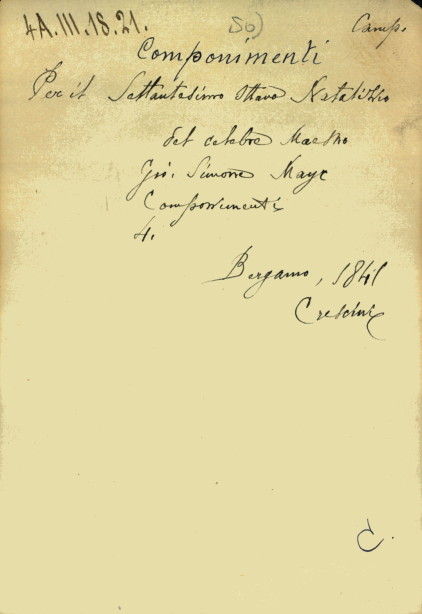 4A.III.18.21. 50) Camp.
Componimenti
Per il Settantesimo Ottavo Natalizio
del celebre Maestro
Gio. Simone Mayr
Componimenti
4.
Bergamo, 1841
Crescini
C.